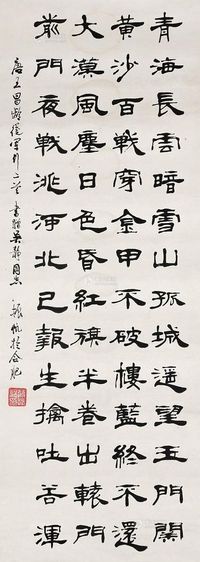 青海長雲暗雪山孤城遥望玉門關
黄沙百戰穿金甲不破樓蘭終不還
大漠風塵日色昏紅旗半卷出轅門
前門夜戰洮河北已報生擒吐谷渾
唐王昌齡從軍行二首 書贈吴静同志 毅帆於合肥